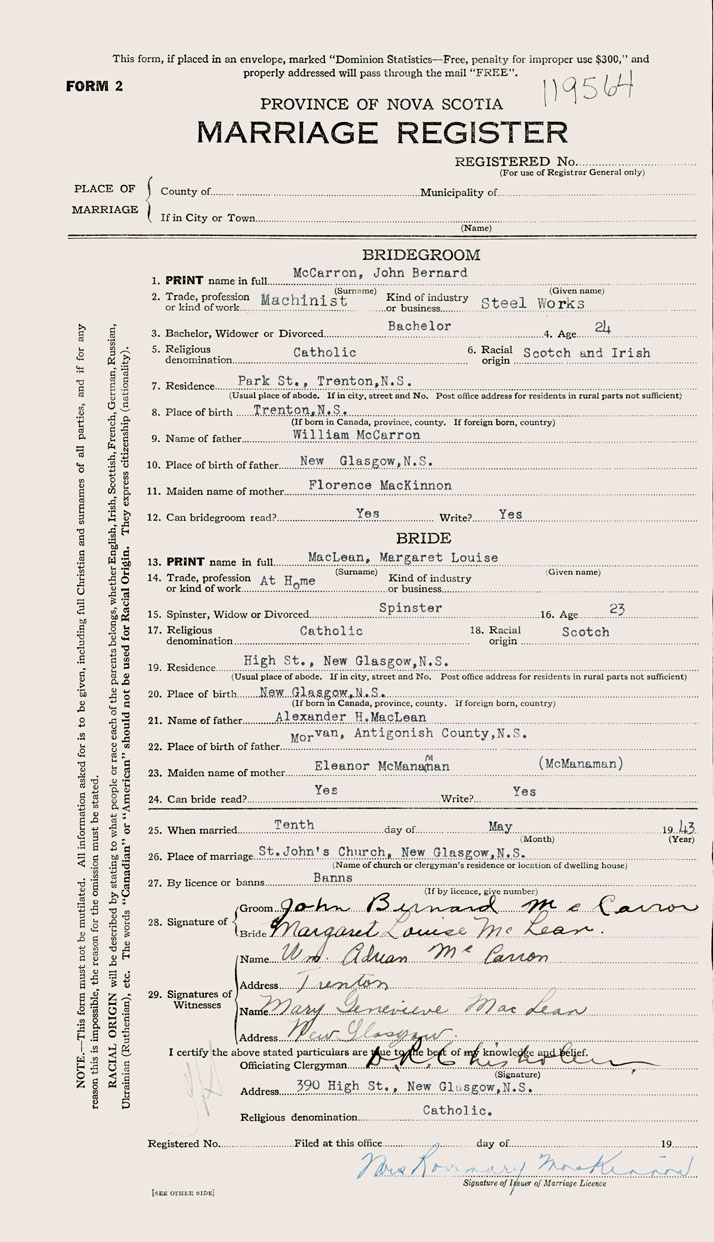 This form, if placed in an envelope, marked "Dominion Statistics—Free, penalty for improper use $300," and
properly addressed will pass through the mail "FREE".
FORM 2
119564
PROVINCE OF NOVA SCOTIA
MARRIAGE REGISTER
REGISTERED No.
(For use of Registrar General only)
PLACE OF MARRIAGE
County of Municipality of
If in City or Town
(Name)
BRIDEGROOM
1. PRINT name in full McCarron, John Bernard
(Surname) (Given name)
2. Trade, profession or kind of work Machinist Kind of industry or business Steel Works
3. Bachelor, Widower or Divorced Bachelor 4. Age 24
5. Religious denomination Catholic 6. Racial origin Scotch and Irish
7. Residence Park St., Trenton,N.S.
(Usual place of abode. If in city, street and No. Post office address for residents in rural parts not sufficient)
8. Place of birth Trenton,N.S.
(If born in Canada, province, county. If foreign born, country)
9. Name of father William McCarron
10. Place of birth of father New Glasgow,N.S.
11. Maiden name of mother Florence MacKinnon
12. Can bridegroom read? Yes Write? Yes
BRIDE
13. PRINT name in full MacLean, Margaret Louise
(Surname) (Given name)
14. Trade, profession or kind of work At Home Kind of industry or business
15. Spinster, Widow or Divorced Spinster 16. Age 23
17. Religious denomination Catholic 18. Racial origin Scotch
19. Residence High St., New Glasgow,N.S.
(Usual place of abode. If in city, street and No. Post office address for residents in rural parts not sufficient)
20. Place of birth New Glasgow,N.S.
(If born in Canada, province, county. If foreign born, country)
21. Name of father Alexander H.MacLean
22. Place of birth of father Morvan, Antigonish County,N.S.
23. Maiden name of mother Eleanor McManaman (McManaman)
24. Can bride read? Yes Write? Yes
25. When married Tenth day of May 1943
(Month) (Year)
26. Place of marriage St.John's Church, New Glasgow,N.S.
(Name of church or clergyman's residence or location of dwelling house)
27. By licence or banns Banns
(If by licence, give number)
28. Signature of
Groom John Bernard McCarron
Bride Margaret Louise McLean.
29. Signatures of Witnesses
Name Wm. Adrian McCarron
Address Trenton
Name Mary Genevieve MacLean
Address New Glasgow.
I certify the above stated particulars are true to the best of my knowledge and belief.
Officiating Clergyman D.R. Chisholm
(Signature)
Address 390 High St., New Glasgow,N.S.
Religious denomination Catholic.
Registered No. Filed at this office day of 19
Mrs Rosemary MacKinnon
Signature of Issuer of Marriage Licence
[SEE OTHER SIDE]
NOTE.—This form must not be mutilated. All information asked for is to be given, including full Christian and surnames of all parties, and if for any
reason this is impossible, the reason for the omission must be stated.
RACIAL ORIGIN will be described by stating to what people or race each of the parents belongs, whether English, Irish, Scottish, French, German, Russian,
Ukrainian (Ruthenian), etc. The words "Canadian" or "American" should not be used for Racial Origin. They express citizenship (nationality).